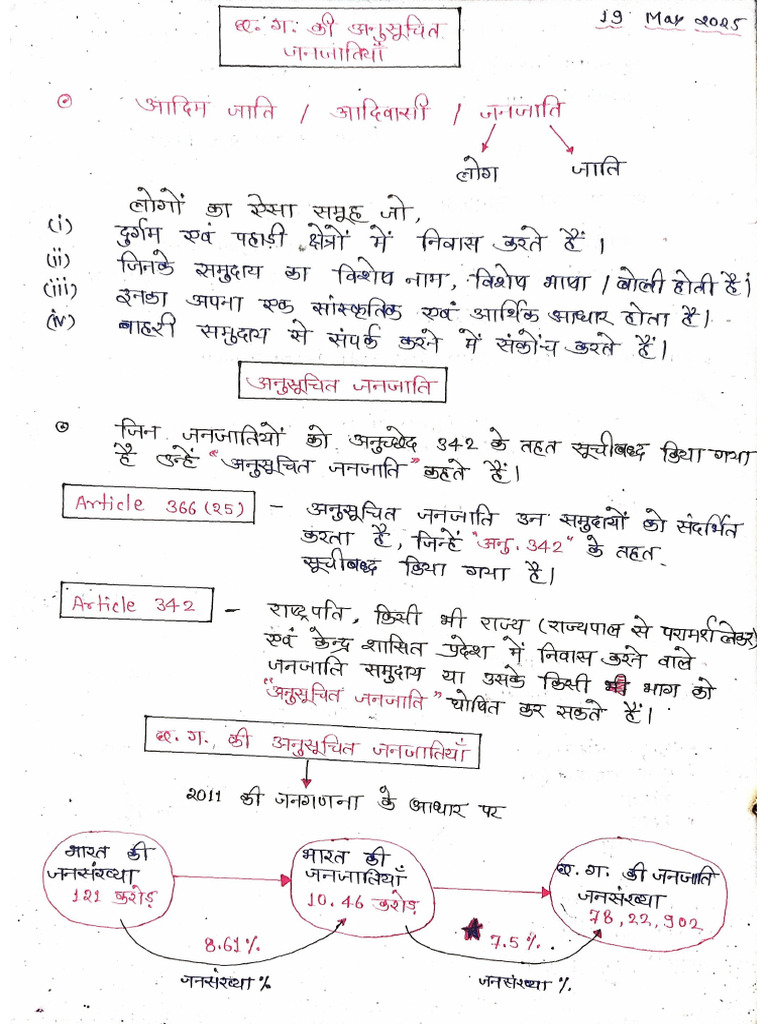 छ.ग. की अनुसूचित
जनजातियाँ
19 May 2025
आदिम जाति / आदिवासी / जनजाति
लोग जाति
लोगों का ऐसा समूह जो,
(i) दुर्गम एवं पहाड़ी क्षेत्रों में निवास करते हैं।
(ii) जिनके समुदाय का विशेष नाम, विशेष भाषा / बोली होती है।
(iii) इनका अपना एक सांस्कृतिक एवं आर्थिक आधार होता है।
(iv) बाहरी समुदाय से संपर्क करने में संकोच करते हैं।
अनुसूचित जनजाति
जिन जनजातियों को अनुच्छेद 342 के तहत सूचीबद्ध किया गया
है उन्हें "अनुसूचित जनजाति" कहते हैं।
Article 366(25) - अनुसूचित जनजाति उन समुदायों को संदर्भित
करता है, जिन्हें "अनु. 342" के तहत
सूचीबद्ध किया गया है।
Article 342 - राष्ट्रपति, किसी भी राज्य (राज्यपाल से परामर्श लेकर)
एवं केन्द्र शासित प्रदेश में निवास करने वाले
जनजाति समुदाय या उसके किसी भी भाग को
"अनुसूचित जनजाति" घोषित कर सकते हैं।
छ.ग. की अनुसूचित जनजातियाँ
2011 की जनगणना के आधार पर
भारत की
जनसंख्या
121 करोड़
भारत की
जनजातियाँ
10.46 करोड़
छ.ग. की जनजाति
जनसंख्या
78,22,902
8.61%
7.5%
जनसंख्या %
जनसंख्या %